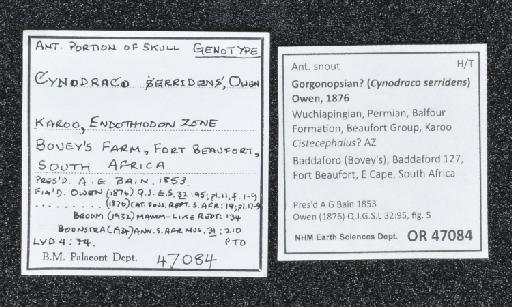 ANT. PORTION OF SKULL GENOTYPE
CYNODRACO SERRIDENS, OWEN
KAROO, ENDOTHIODON ZONE
BOVEY'S FARM, FORT BEAUFORT,
SOUTH AFRICA
PRES'D. A.G. BAIN, 1853
FIG'D. OWEN (1876) Q.J.G.S. 32:95; pl.11, f.1-9
(1876) CAT. FOSS. REPT. S. AFR.: 19; pl.17-9
BROOM (1932) MAMM-LIKE REPT: 134
BOONSTRA (1934) ANN. S. AFR. MUS. 31: 210
LYD 4: 74. PTO
B.M. Palæont Dept. 47084
Ant. snout H/T
Gorgonopsian? (Cynodraco serridens)
Owen, 1876
Wuchiapingian, Permian, Balfour
Formation, Beaufort Group, Karoo
Cistecephalus? AZ
Baddaford (Bovey's), Baddaford 127,
Fort Beaufort, E Cape, South Africa
Pres'd A G Bain 1853
Owen (1876) Q.J.G.S.L 32:95, fig. 5
NHM Earth Sciences Dept. OR 47084